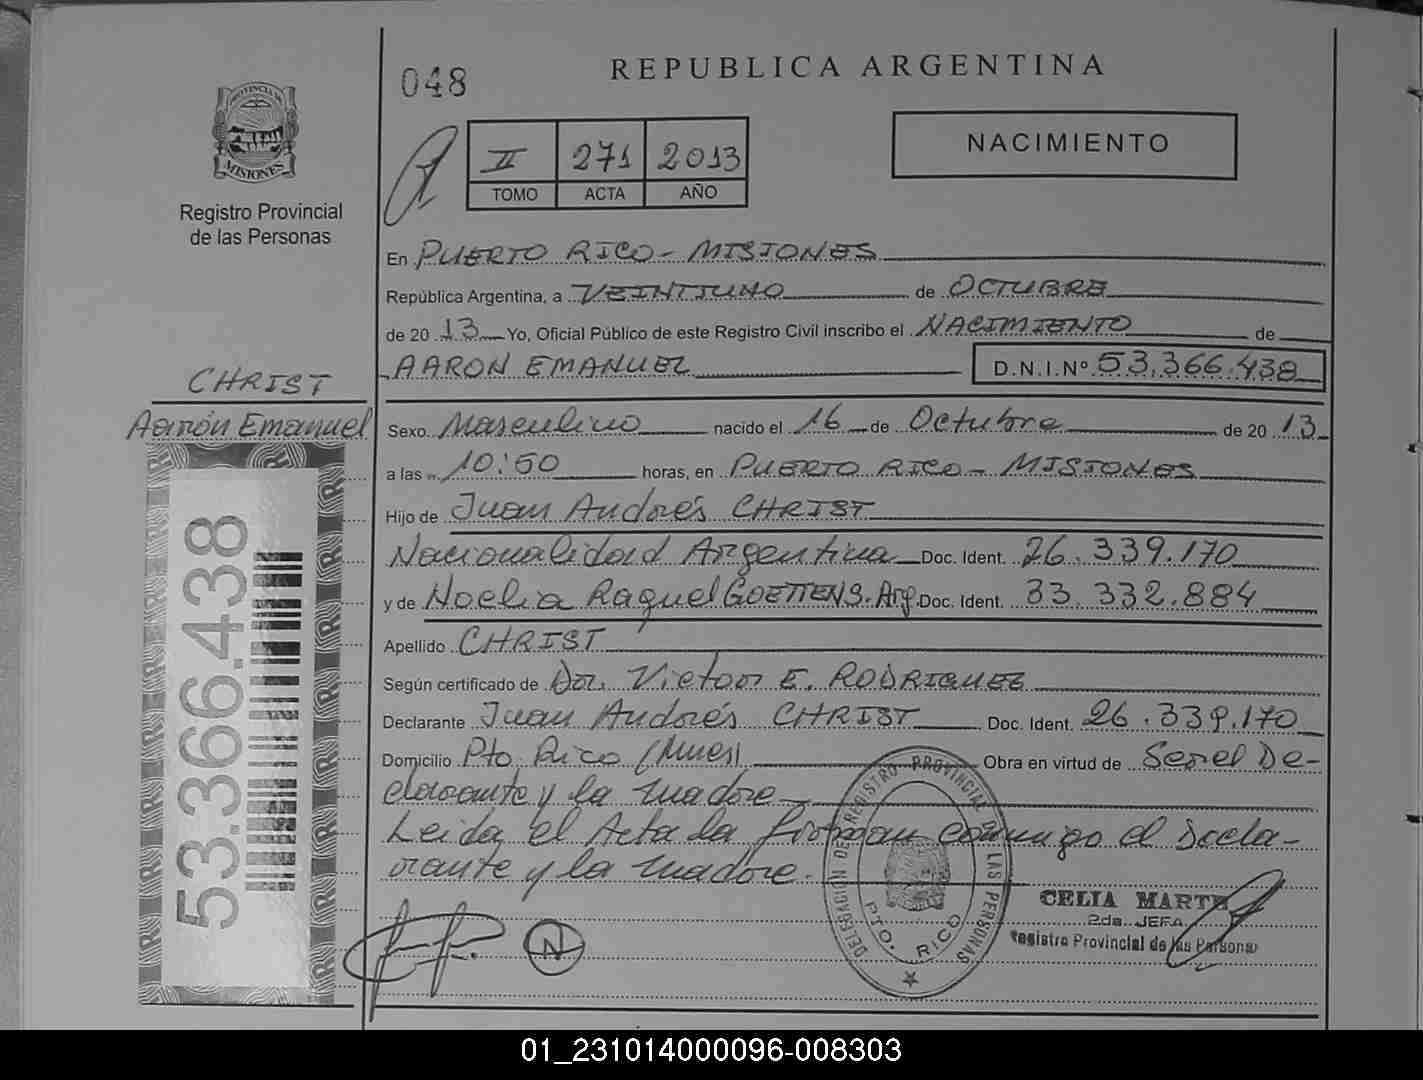 048
REPUBLICA ARGENTINA
PROVINCIA DE
MISIONES
Registro Provincial
de las Personas
II 271 2013
TOMO ACTA AÑO
NACIMIENTO
En PUERTO RICO - MISIONES
República Argentina, a VEINTIUNO de OCTUBRE
de 20 13 Yo, Oficial Público de este Registro Civil inscribo el NACIMIENTO de
AARON EMANUEL D.N.I.Nº 53.366.438
CHRIST
Aarón Emanuel
Sexo Masculino nacido el 16 de Octubre de 20 13
a las 10:50 horas, en PUERTO RICO - MISIONES
Hijo de Juan Andrés CHRIST
Nacionalidad Argentina Doc. Ident. 26.339.170
y de Noelia Raquel GOETTENS. Arg. Doc. Ident. 33.332.884
Apellido CHRIST
Según certificado de Dr. Victor E. RODRIGUEZ
Declarante Juan Andrés CHRIST Doc. Ident. 26.339.170
Domicilio Pto. Rico (Mnes) Obra en virtud de Ser el De-
clarante y la madre
Leida el Acta la firman conmigo el Decla-
rante y la madre.
53.366.438
DELEGACION DEL REGISTRO PROVINCIAL DE LAS PERSONAS
PTO. RICO
CELIA MARTE
2da. JEFA
Registro Provincial de las Personas
N
01_231014000096-008303